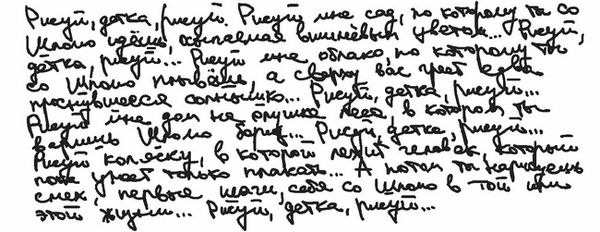 Рисуй, детка, рисуй. Рисуй мне сад, по которому ты со
Шломо идёшь, осыпаемая вишнёвым цветом... Рисуй,
детка, рисуй... Рисуй мне облако, по которому ты
со Шломо плывёшь, а сверху вас греет едва
проснувшееся солнышко... Рисуй, детка, рисуй...
Рисуй мне дом на опушке леса, в котором ты
варишь Шломо борщ... Рисуй, детка, рисуй...
Рисуй коляску, в которой лежит человек, который
пока умеет только плакать... А потом ты нарисуешь
смех, первые шаги, себя со Шломо в той или
этой жизни... Рисуй, детка, рисуй...